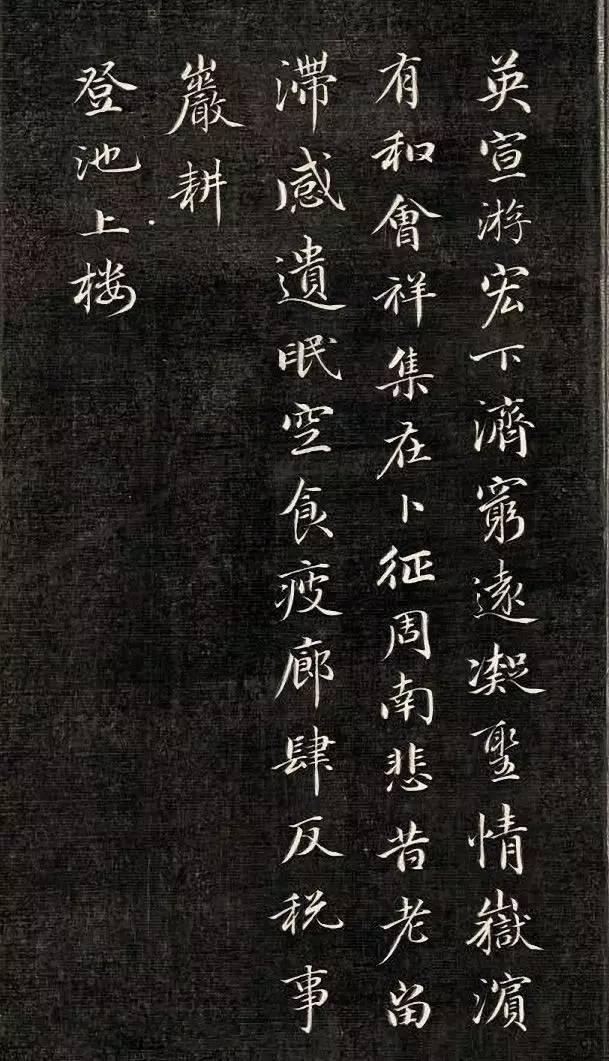 英宣游宏下濟窮遠凝聖情嶽濱
有和會祥集在卜征周南悲昔老留
滯感遺眠空食疲廊肆反税事
巖耕
登池上楼